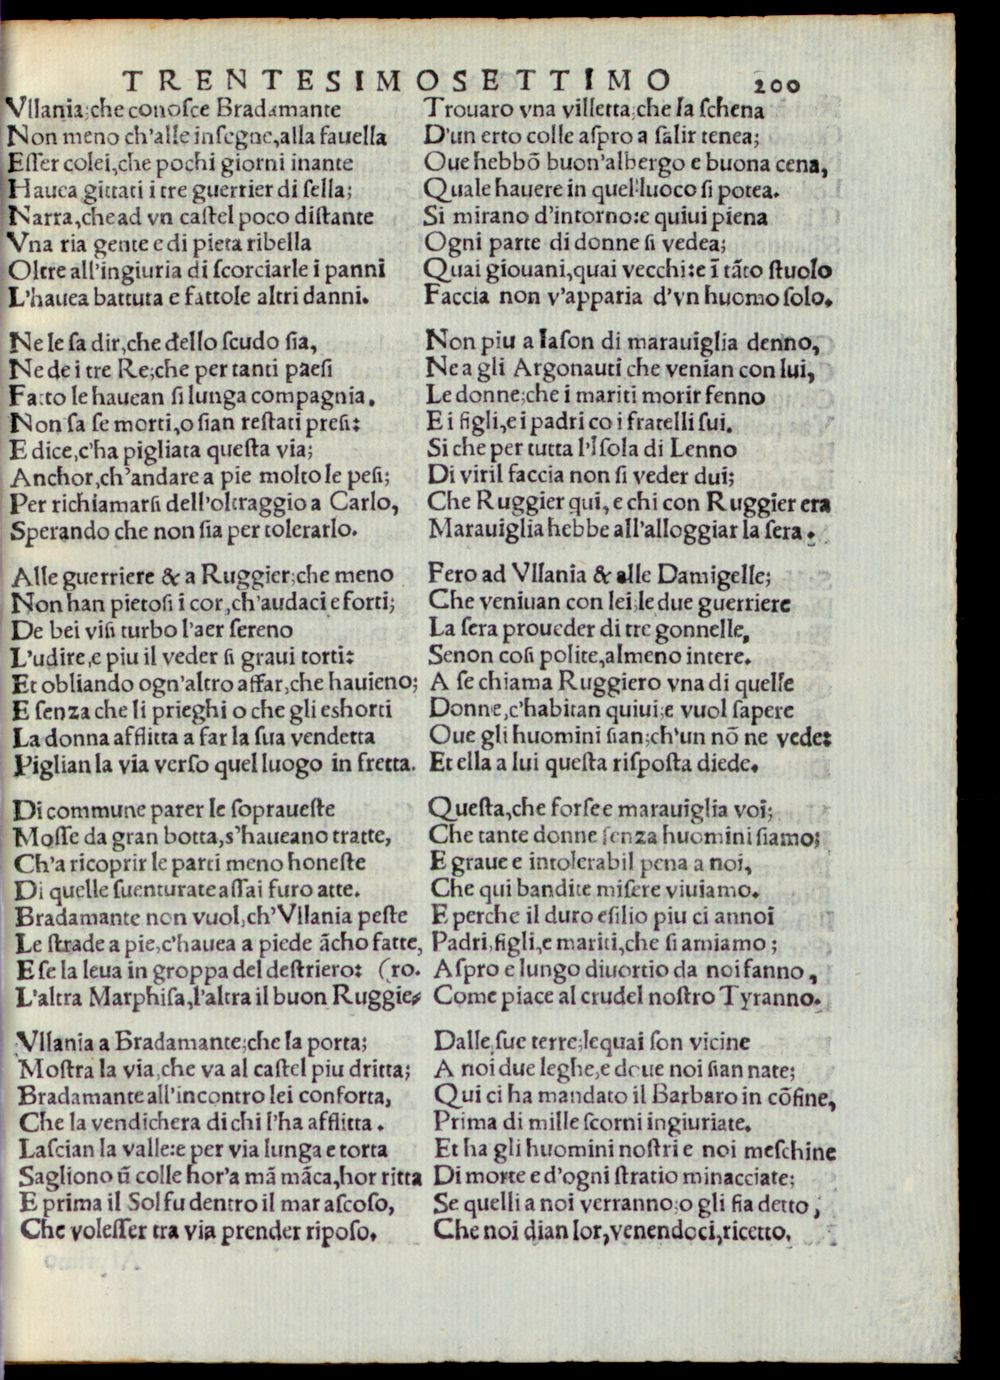 TRENTESIMOSETTIMO 200
Vllania;che conosce Bradamante
Non meno ch'alle insegne,alla fauella
Esser colei,che pochi giorni inante
Hauea gittati i tre guerrier di sella;
Narra,che ad vn castel poco distante
Vna ria gente e di pieta ribella
Oltre all'ingiuria di scorciarle i panni
L'hauea battuta e fattole altri danni.

Ne le sa dir,che dello scudo sia,
Ne de i tre Re;che per tanti paesi
Fatto le hauean si lunga compagnia.
Non sa se morti,o sian restati presi:
E dice,c'ha pigliata questa via;
Anchor,ch'andare a pie molto le pesi;
Per richiamarsi dell'oltraggio a Carlo,
Sperando che non sia per tolerarlo.

Alle guerriere & a Ruggier;che meno
Non han pietosi i cor,ch'audaci e forti;
De bei visi turbo l'aer sereno
L'udire,e piu il veder si graui torti:
Et obliando ogn'altro affar,che hauieno;
E senza che li prieghi o che gli eshorti
La donna afflitta a far la sua vendetta
Piglian la via verso quel luogo in fretta.

Di commune parer le soprauesте
Mosse da gran botta,s'haueano tratte,
Ch'a ricoprir le parti meno honeste
Di quelle suenturate assai furo atte.
Bradamante non vuol,ch'Vllania peste
Le strade a pie,c'hauea a piede ãcho fatte,
E se la leua in groppa del destriero: (ro.
L'altra Marphisa,l'altra il buon Ruggie-

Vllania a Bradamante;che la porta;
Mostra la via,che va al castel piu dritta;
Bradamante all'incontro lei conforta,
Che la vendichera di chi l'ha afflitta.
Lascian la valle:e per via lunga e torta
Sagliono ũ colle hor'a mã mãca,hor ritta
E prima il Sol fu dentro il mar ascoso,
Che volesser tra via prender riposo.

Trouaro vna villetta;che la schena
D'un erto colle aspro a salir tenea;
Oue hebbõ buon'albergo e buona cena,
Quale hauere in quel luoco si potea.
Si mirano d'intorno:e quiui piena
Ogni parte di donne si vedea;
Quai giouani,quai vecchi:e ĩ tãto stuolo
Faccia non v'apparia d'vn huomo solo.

Non piu a Iason di marauiglia denno,
Ne a gli Argonauti che venian con lui,
Le donne;che i mariti morir fenno
E i figli,e i padri co i fratelli sui.
Si che per tutta l'Isola di Lenno
Di viril faccia non si veder dui;
Che Ruggier qui,e chi con Ruggier era
Marauiglia hebbe all'alloggiar la sera.

Fero ad Vllania & alle Damigelle;
Che veniuan con lei;le due guerriere
La sera proueder di tre gonnelle,
Senon cosi polite,almeno intere.
A se chiama Ruggiero vna di quelle
Donne,c'habitan quiui;e vuol sapere
Oue gli huomini sian;ch'un nõ ne vede:
Et ella a lui questa risposta diede.

Questa,che forse e marauiglia voi;
Che tante donne senza huomini siamo;
E graue e intolerabil pena a noi,
Che qui bandite misere viuiamo.
E perche il duro esilio piu ci annoi
Padri,figli,e mariti,che si amiamo;
Aspro e lungo diuortio da noi fanno,
Come piace al crudel nostro Tyranno.

Dalle sue terre;lequai son vicine
A noi due leghe,e doue noi sian nate;
Qui ci ha mandato il Barbaro in cõfine,
Prima di mille scorni ingiuriate.
Et ha gli huomini nostri e noi meschine
Di morte e d'ogni stratio minacciate;
Se quelli a noi verranno;o gli fia detto,
Che noi dian lor,venendoci,ricetto.